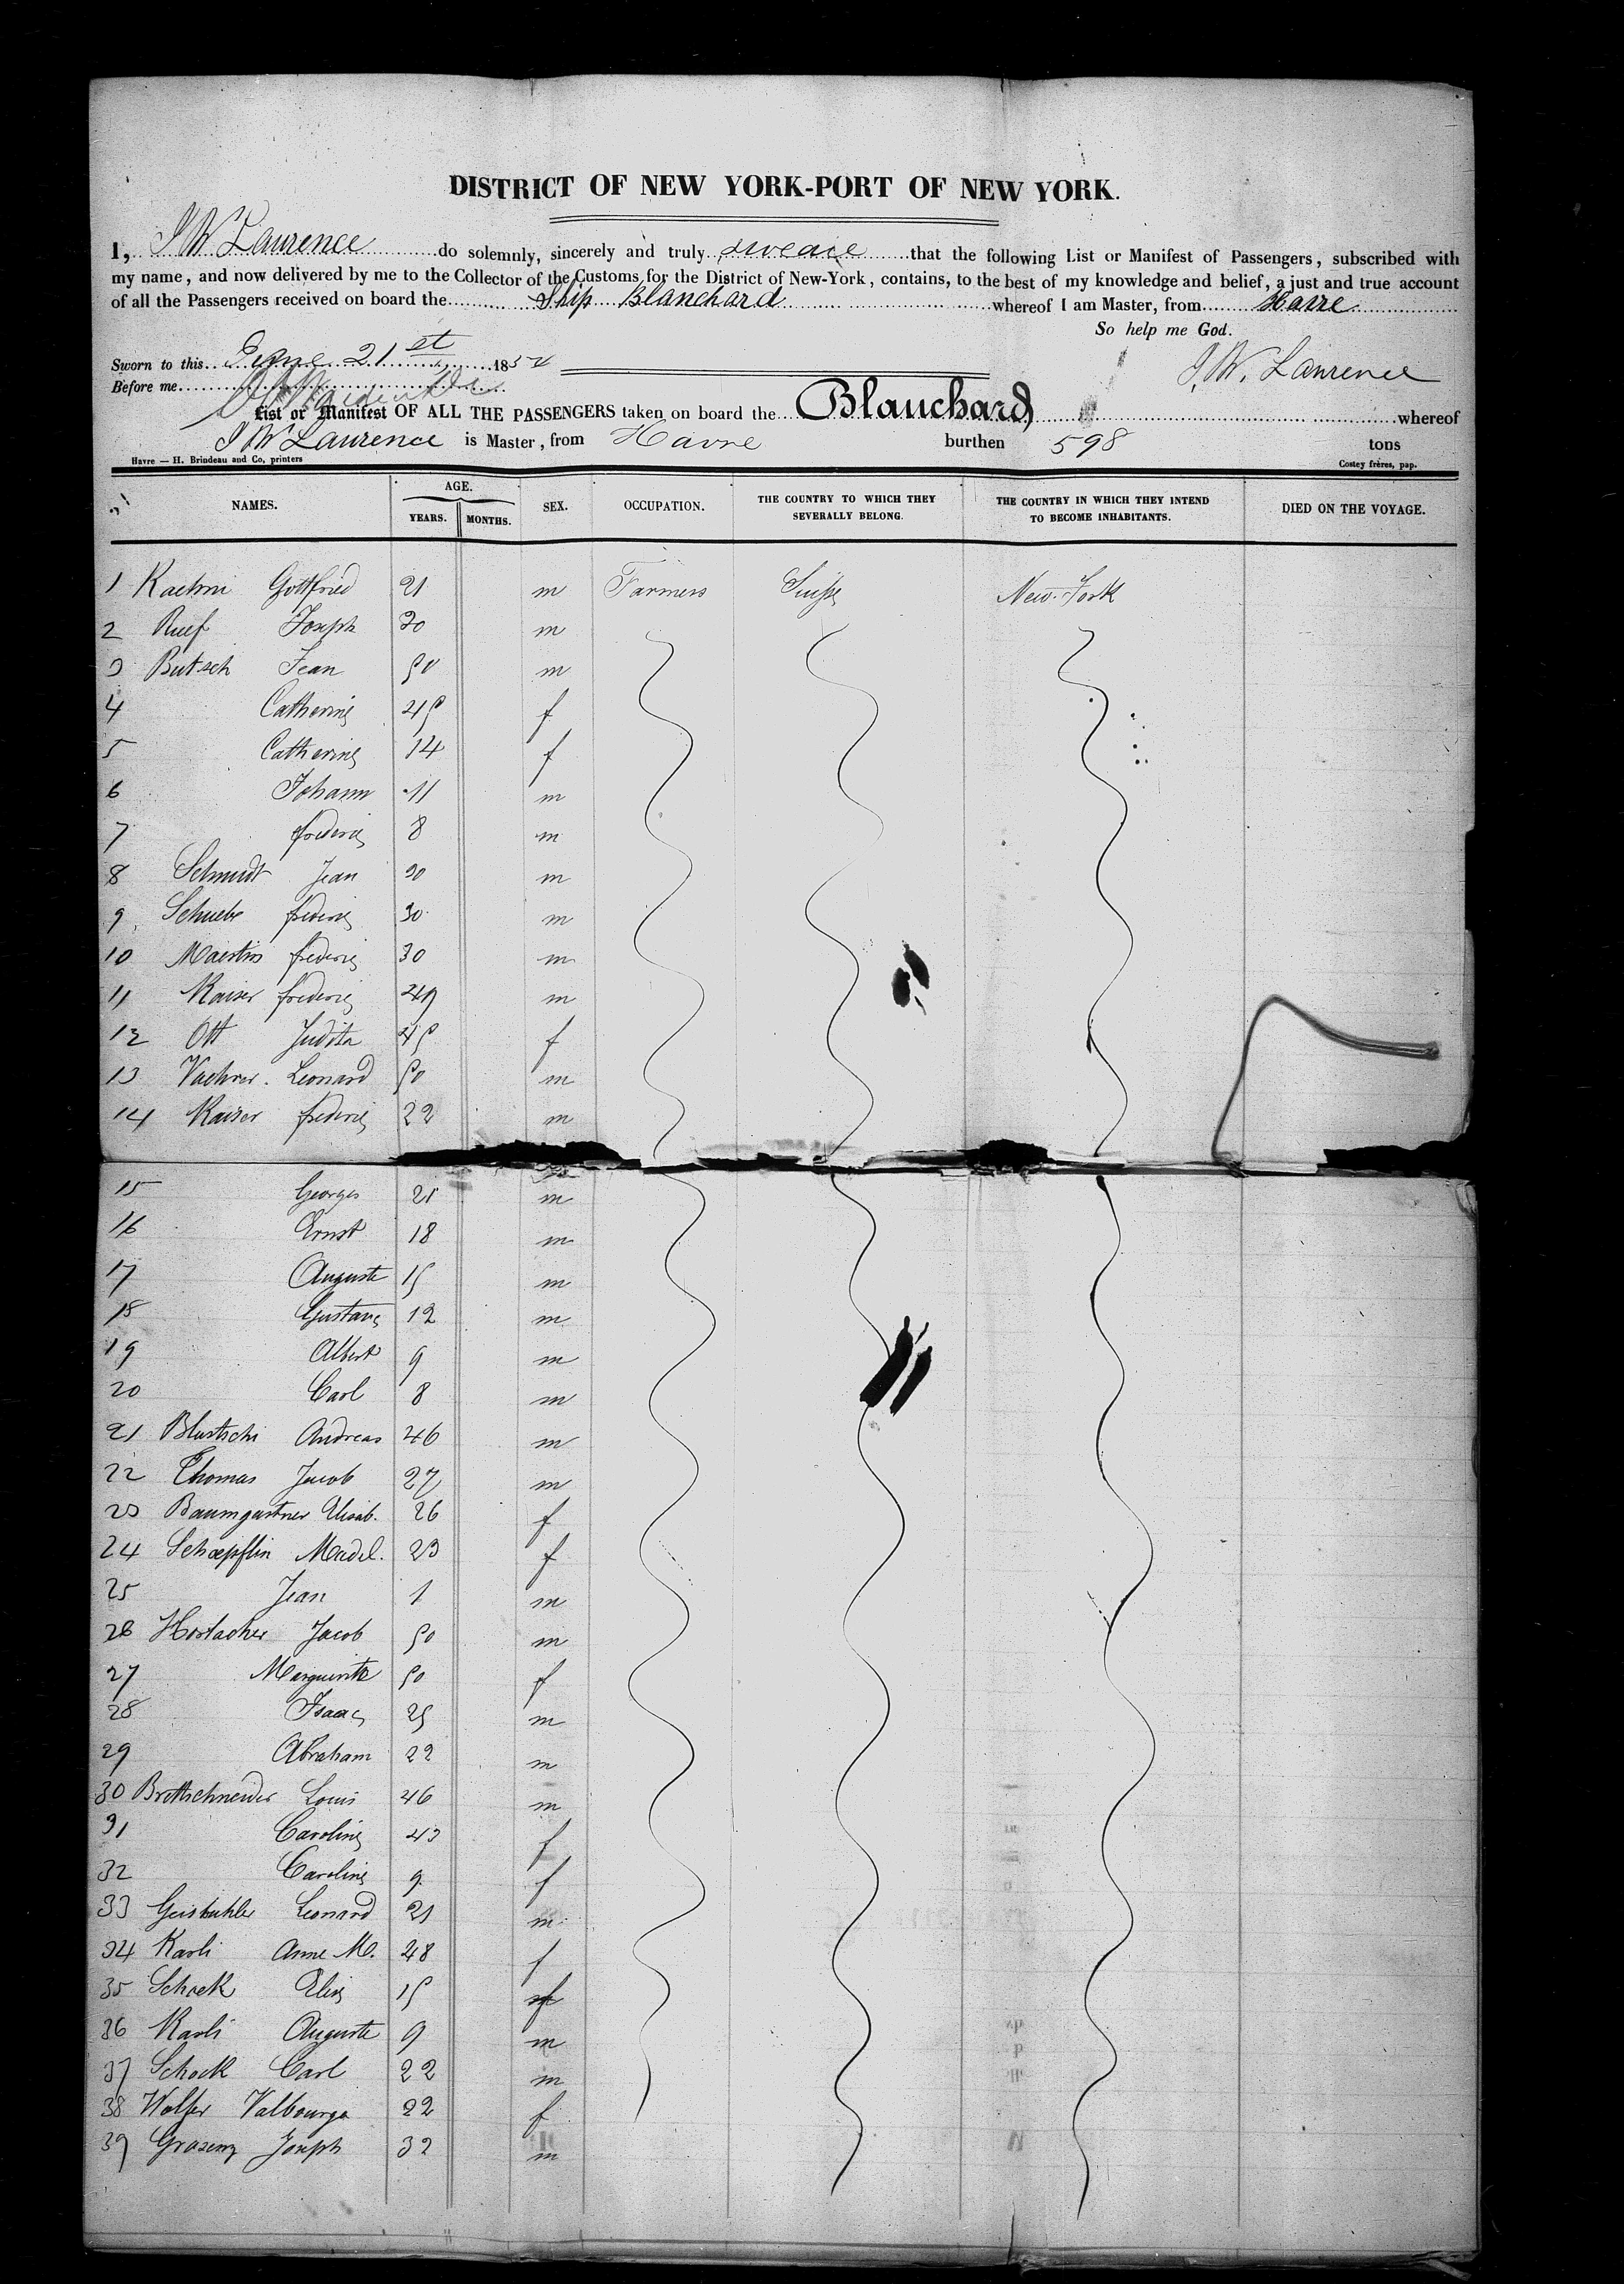 DISTRICT OF NEW YORK-PORT OF NEW YORK.
I, J W Laurence do solemnly, sincerely and truly sweare that the following List or Manifest of Passengers, subscribed with
my name, and now delivered by me to the Collector of the Customs for the District of New-York, contains, to the best of my knowledge and belief, a just and true account
of all the Passengers received on board the Ship Blanchard whereof I am Master, from Havre
So help me God.
Sworn to this June 21st 1854
J. W. Laurence
Before me
List or Manifest OF ALL THE PASSENGERS taken on board the Blanchard whereof
J W Laurence is Master, from Havre burthen 598 tons
Havre — H. Brindeau and Co, printers
Costey frères, pap.
NAMES. AGE. YEARS. MONTHS. SEX. OCCUPATION. THE COUNTRY TO WHICH THEY SEVERALLY BELONG. THE COUNTRY IN WHICH THEY INTEND TO BECOME INHABITANTS. DIED ON THE VOYAGE.
1 Kaehni Gottfried 21 m Farmers Suisse New-York
2 Ruef Joseph 30 m
3 Butsch Jean 50 m
4 Catherine 45 f
5 Catherine 14 f
6 Johann 11 m
7 frederic 8 m
8 Schmidt Jean 30 m
9 frederic 30 m
10 Maertin frederic 30 m
11 Kaiser frederic 49 m
12 Ott Judith 45 f
13 Leonard 50 m
14 Kaiser frederic 22 m
15 Georges 21 m
16 Ernst 18 m
17 Auguste 15 m
18 Gustave 12 m
19 Albert 9 m
20 Carl 8 m
21 Andreas 46 m
22 Thomas Jacob 27 m
23 Baumgartner Elisab. 26 f
24 Schœpflin Madel. 23 f
25 Jean 1 m
26 Hostacher Jacob 50 m
27 Marguerite 50 f
28 Isaac 25 m
29 Abraham 22 m
30 Brettschneider Louis 46 m
31 Caroline 43 f
32 Caroline 9 f
33 Geisbuhler Leonard 21 m
34 Karli Anne M. 48 f
35 Schock Elise 15 f
36 Karli Auguste 9 m
37 Schock Carl 22 m
38 Wolfer Valbourga 22 f
39 Joseph 32 m